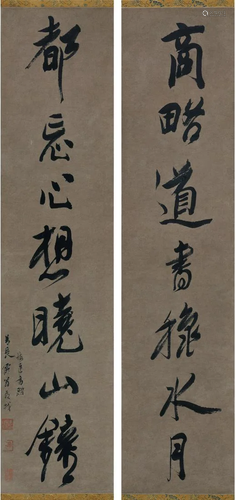 商略道書穐水月
都忘心想曉山鐘